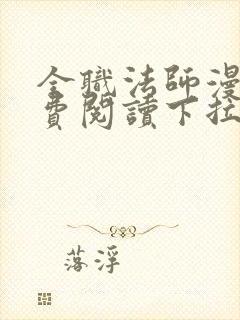 全職法師漫
費閱讀下拉
落浮